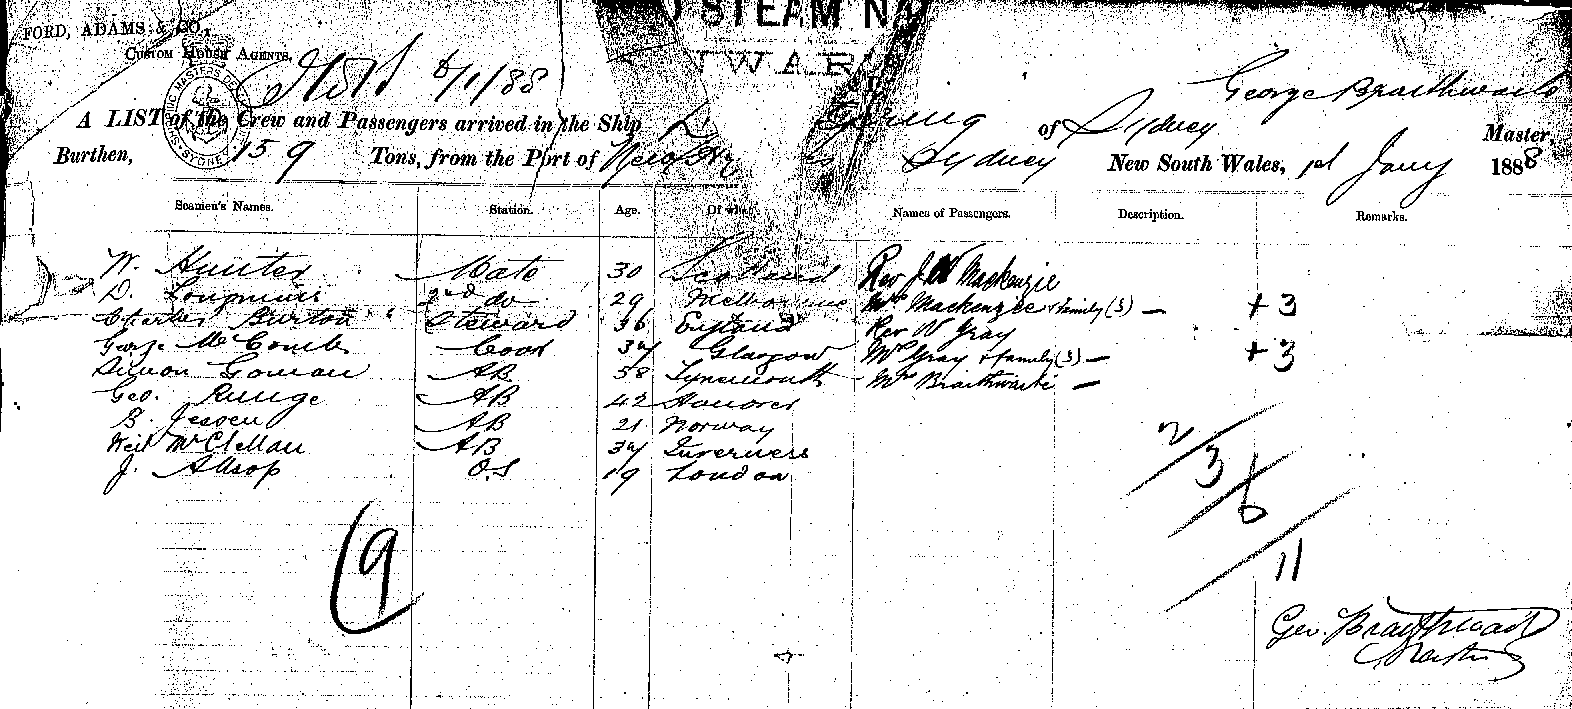 STEAM NA
FORD, ADAMS & CO.,
CUSTOM HOUSE AGENTS,
WAR
6/1/88
George Braithwaite
A LIST of the Crew and Passengers arrived in the Ship of Sydney Master,
Burthen, 159 Tons, from the Port of Sydney New South Wales, 1st Jany 1888
Seamen's Names. Station. Age. Of what Names of Passengers. Description. Remarks.
W. Hunter Mate 30 Scotland Rev J W Mackenzie
D. 2nd do 29 Melbourne Mrs Mackenzie & family (3) — + 3
Charles Burton Steward 36 England Rev W Gray
George McComb Cook 34 Glasgow Mrs Gray & family (3) — + 3
Simon AB 58 Tynemouth Mrs Braithwaite —
Geo. Runge AB 42 Hanover
B. Jessen AB 21 Norway
Neil McClellan AB 34 Inverness
J. Allsop O.S 19 London
2/3/6/11
(9
Geo. Braithwaite
Master